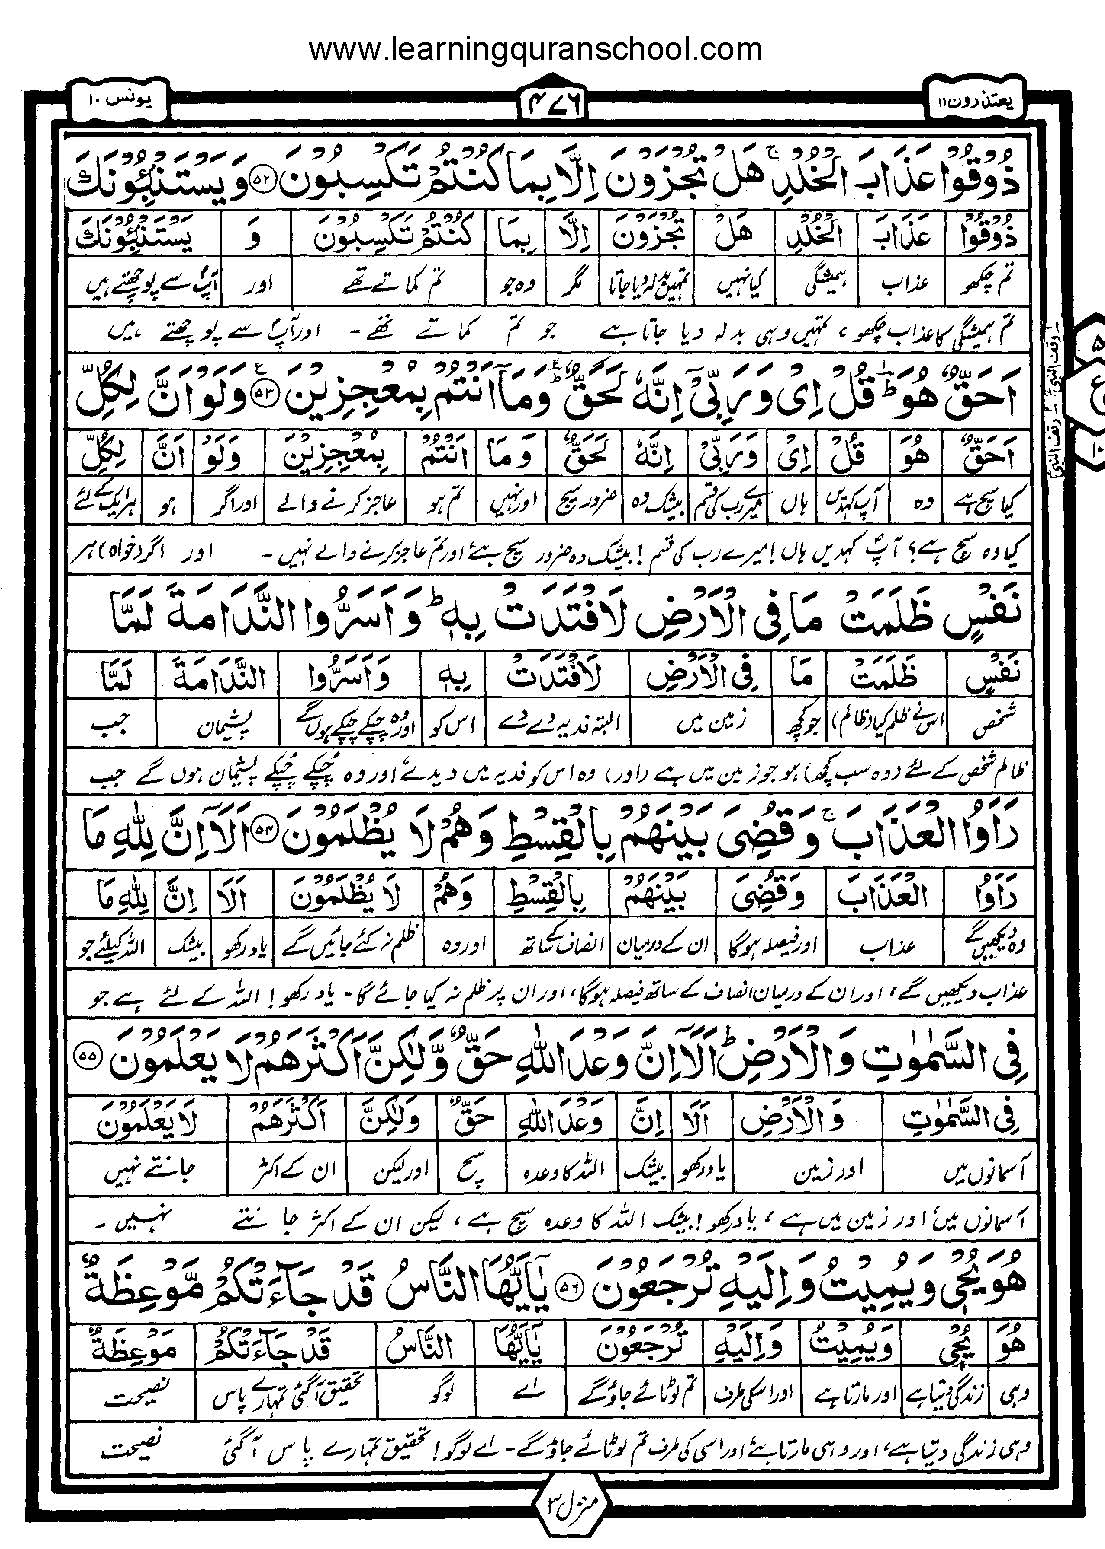 www.learningquranschool.com
یعتذرون ۱۱ ۴۷۶ یونس ۱۰
ذُوْقُوْا عَذَابَ الْخُلْدِ ۚ هَلْ تُجْزَوْنَ اِلَّا بِمَا كُنْتُمْ تَكْسِبُوْنَ ﴿۵۲﴾ وَيَسْتَنْۢبِـُٔوْنَكَ
ذُوْقُوْا عَذَابَ الْخُلْدِ هَلْ تُجْزَوْنَ اِلَّا بِمَا كُنْتُمْ تَكْسِبُوْنَ وَ يَسْتَنْۢبِـُٔوْنَكَ
تم چکھو عذاب ہمیشگی کیا نہیں تمہیں بدلہ دیا جاتا مگر وہ جو تم کماتے تھے اور آپؐ سے پوچھتے ہیں
تم ہمیشگی کا عذاب چکھو، تمہیں وہی بدلہ دیا جاتا ہے جو تم کماتے تھے۔ اور آپؐ سے پوچھتے ہیں
اَحَقٌّ هُوَ ؕ قُلْ اِيْ وَرَبِّيْٓ اِنَّهٗ لَحَقٌّ ؕ وَمَآ اَنْتُمْ بِمُعْجِزِيْنَ ﴿۵۳﴾ وَلَوْ اَنَّ لِكُلِّ
اَحَقٌّ هُوَ قُلْ اِيْ وَرَبِّيْٓ اِنَّهٗ لَحَقٌّ وَمَا اَنْتُمْ بِمُعْجِزِيْنَ وَلَوْ اَنَّ لِكُلِّ
کیا سچ ہے وہ آپ کہدیں ہاں میرے رب کی قسم بیشک وہ ضرور سچ اور نہیں تم ہو عاجز کرنے والے اور اگر ہو ہر ایک کے لئے
کیا وہ سچ ہے؟ آپؐ کہدیں ہاں! میرے رب کی قسم! بیشک وہ ضرور سچ ہے اور تم عاجز کرنے والے نہیں۔ اور اگر (خواہ) ہر
نَفْسٍ ظَلَمَتْ مَا فِي الْاَرْضِ لَافْتَدَتْ بِهٖ ؕ وَاَسَرُّوا النَّدَامَةَ لَمَّا
نَفْسٍ ظَلَمَتْ مَا فِي الْاَرْضِ لَافْتَدَتْ بِهٖ وَاَسَرُّوا النَّدَامَةَ لَمَّا
شخص اس نے ظلم کیا (ظالم) جو کچھ زمین میں البتہ فدیہ دے دے اس کو اور وہ چپکے چپکے ہوں گے پشیمان جب
ظالم شخص کے لئے (وہ سب کچھ) ہو جو زمین میں ہے (اور) وہ اس کو فدیہ میں دیدے اور وہ چپکے چپکے پشیمان ہوں گے جب
رَاَوُا الْعَذَابَ ۚ وَقُضِيَ بَيْنَهُمْ بِالْقِسْطِ وَهُمْ لَا يُظْلَمُوْنَ ﴿۵۴﴾ اَلَآ اِنَّ لِلّٰهِ مَا
رَاَوُا الْعَذَابَ وَقُضِيَ بَيْنَهُمْ بِالْقِسْطِ وَهُمْ لَا يُظْلَمُوْنَ اَلَا اِنَّ لِلّٰهِ مَا
وہ دیکھیں گے عذاب اور فیصلہ ہوگا ان کے درمیان انصاف کے ساتھ اور وہ ظلم نہ کئے جائیں گے یاد رکھو بیشک اللہ کیلئے جو
عذاب دیکھیں گے، اور ان کے درمیان انصاف کے ساتھ فیصلہ ہوگا، اور ان پر ظلم نہ کیا جائے گا۔ یاد رکھو! اللہ کے لئے ہے جو
فِي السَّمٰوٰتِ وَالْاَرْضِ ؕ اَلَآ اِنَّ وَعْدَ اللّٰهِ حَقٌّ وَّلٰكِنَّ اَكْثَرَهُمْ لَا يَعْلَمُوْنَ ﴿۵۵﴾
فِي السَّمٰوٰتِ وَالْاَرْضِ اَلَا اِنَّ وَعْدَ اللّٰهِ حَقٌّ وَلٰكِنَّ اَكْثَرَهُمْ لَا يَعْلَمُوْنَ
آسمانوں میں اور زمین یاد رکھو بیشک اللہ کا وعدہ سچ اور لیکن ان کے اکثر جانتے نہیں
آسمانوں میں اور زمین میں ہے، یاد رکھو! بیشک اللہ کا وعدہ سچ ہے، لیکن ان کے اکثر جانتے نہیں۔
هُوَ يُحْيٖ وَيُمِيْتُ وَاِلَيْهِ تُرْجَعُوْنَ ﴿۵۶﴾ يٰٓاَيُّهَا النَّاسُ قَدْ جَآءَتْكُمْ مَّوْعِظَةٌ
هُوَ يُحْيٖ وَيُمِيْتُ وَاِلَيْهِ تُرْجَعُوْنَ يٰٓاَيُّهَا النَّاسُ قَدْ جَآءَتْكُمْ مَوْعِظَةٌ
وہی زندگی دیتا ہے اور مارتا ہے اور اسکی طرف تم لوٹائے جاؤ گے اے لوگو تحقیق آگئی تمہارے پاس نصیحت
وہی زندگی دیتا ہے، اور وہی مارتا ہے اور اسی کی طرف تم لوٹائے جاؤ گے۔ اے لوگو! تحقیق تمہارے پاس آگئی نصیحت
منزل ۳